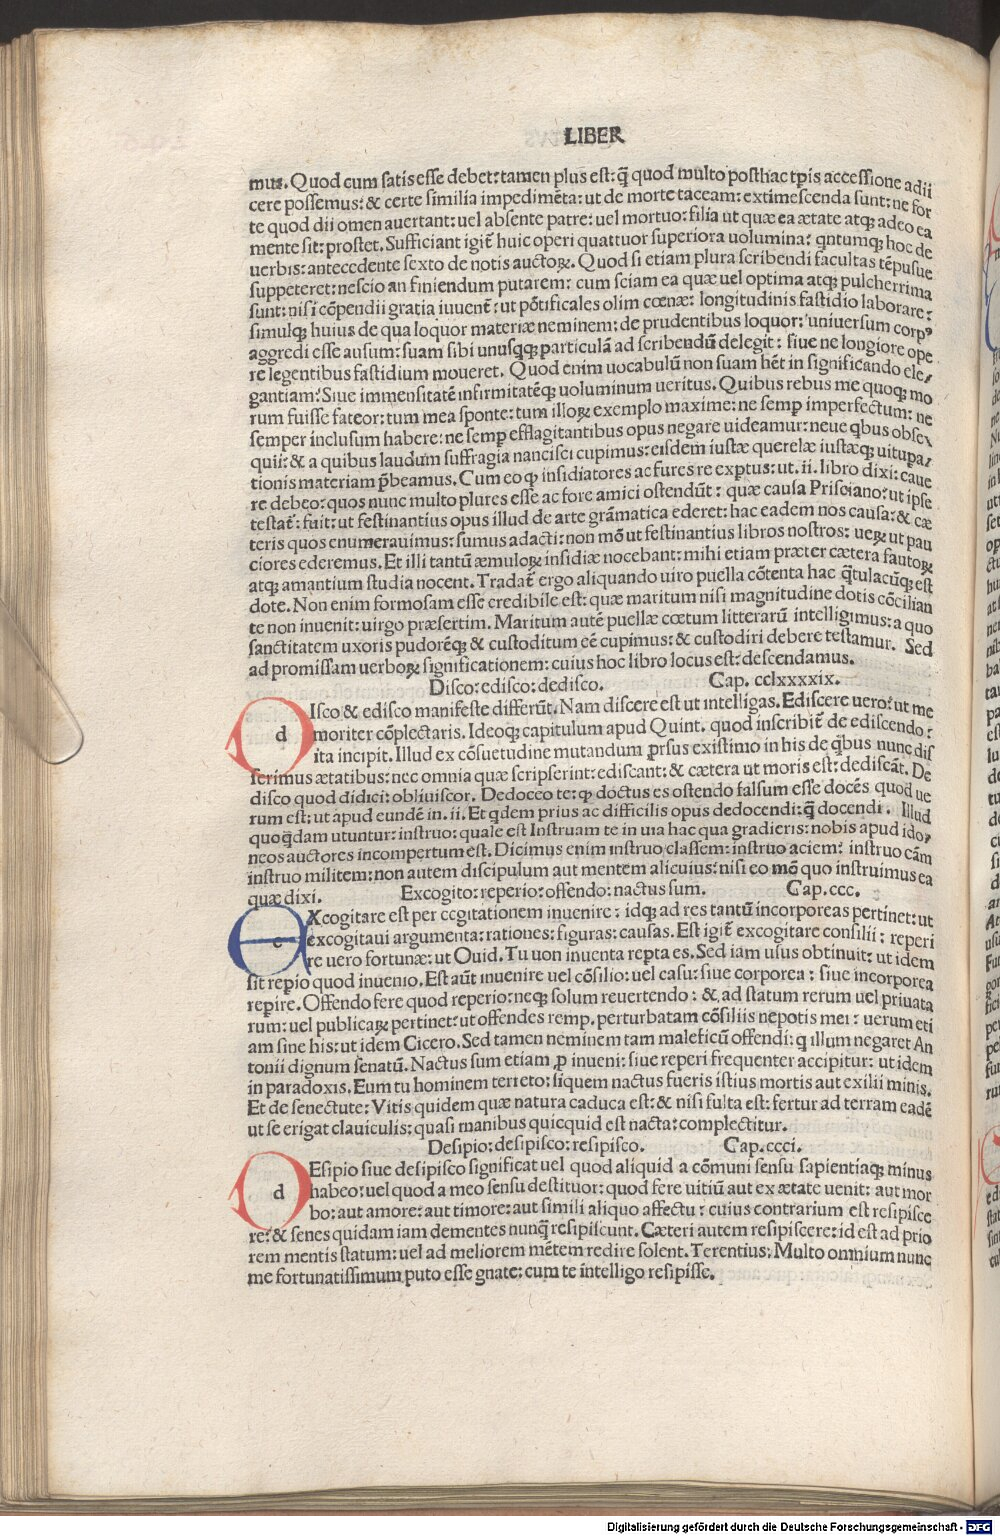 LIBER
mus. Quod cum satis esse debet: tamen plus est: q̄ quod multo posthac tp̄is accessione adii
cere possemus: & certe similia impedimēta: ut de morte taceam: extimescenda sunt: ne for
te quod dii omen auertant: uel absente patre: uel mortuo: filia ut quæ ea ætate atq; adeo ea
mente sit: prostet. Sufficiant igit̄ huic operi quattuor superiora uolumina: qntumq; hoc de
uerbis: antecedente sexto de notis auctoꝝ. Quod si etiam plura scribendi facultas tēpusue
suppeteret: nescio an finiendum putarem: cum sciam ea quæ uel optima atq; pulcherrima
sunt: nisi cōpendii gratia iuuent̄: ut pōtificales olim cœnæ: longitudinis fastidio laborare:
simulq; huius de qua loquor materiæ neminem: de prudentibus loquor: uniuersum corpꝰ
aggredi esse ausum: suam sibi unusq̨q; particulā ad scribendū delegit: siue ne longiore ope
re legentibus fastidium moueret. Quod enim uocabulū non suam hēt in significando ele,
gantiam? Siue immensitatē infirmitatēq; uoluminum ueritus. Quibus rebus me quoq; mo
rum fuisse fateor: tum mea sponte: tum illoꝝ exemplo maxime: ne semp̄ imperfectum: ne
semper inclusum habere: ne semp̄ efflagitantibus opus negare uideamur: neue qbus obse,
quii: & a quibus laudum suffragia nancisci cupimus: eisdem iustæ querelæ iustæq; uitupa,
tionis materiam p̄beamus. Cum eo qꝫ insidiatores ac fures re exp̄tus: ut .ii. libro dixi: caue
re debeo: quos nunc multo plures esse ac fore amici ostendūt: quæ causa Prisciano: ut ipse
testat̄: fuit: ut festinantius opus illud de arte grāmatica ederet: hac eadem nos causa: & cæ
teris quos enumerauimus: sumus adacti: non mō ut festinantius libros nostros: ueꝝ ut pau
ciores ederemus. Et illi tantū æmuloꝝ insidiæ nocebant: mihi etiam præter cætera fautoꝝ
atq; amantium studia nocent. Tradat̄ ergo aliquando uiro puella cōtenta hac q̄tulacūq; est
dote. Non enim formosam esse credibile est: quæ maritum nisi magnitudine dotis cōcilian
te non inuenit: uirgo præsertim. Maritum autē puellæ cœtum litterarū intelligimus: a quo
sanctitatem uxoris pudorēq; & custoditum eē cupimus: & custodiri debere testamur. Sed
ad promissam uerboꝝ significationem: cuius hoc libro locus est: descendamus.
Disco: edisco: dedisco. Cap. cclxxxxix.
dIsco & edisco manifeste differūt. Nam discere est ut intelligas. Ediscere uero: ut me
moriter cōplectaris. Ideoq; capitulum apud Quint. quod inscribit̄ de ediscendo:
ita incipit. Illud ex cōsuetudine mutandum prsus existimo in his de qbus nunc dis
serimus ætatibus: nec omnia quæ scripserint: ediscant: & cætera ut moris est: dediscāt. De
disco quod didici: obliuiscor. Dedoceo te: qꝫ doctus es ostendo falsum esse docēs quod ue
rum est: ut apud eundē in. ii. Et qdem prius ac difficilis opus dedocendi: q̄ docendi. Illud
quo q̄dam utuntur: instruo: quale est Instruam te in uia hac qua gradieris: nobis apud ido,
neos auctores incompertum est. Dicimus enim instruo classem: instruo aciem: instruo cām
instruo militem: non autem discipulum aut mentem alicuius: nisi eo mō quo instruimus ea
quæ dixi. Excogito: reperio: offendo: nactus sum. Cap. ccc.
eXcogitare est per cogitationem inuenire: idq; ad res tantū incorporeas pertinet: ut
excogitaui argumenta: rationes: figuras: causas. Est igit̄ excogitare consilii: reperi
re uero fortunæ: ut Ouid. Tu uon inuenta rep̄ta es. Sed iam usus obtinuit: ut idem
sit rep̄io quod inuenio. Est aūt inuenire uel cōsilio: uel casu: siue corporea: siue incorporea
rep̄ire. Offendo fere quod reperio: neq; solum reuertendo: & ad statum rerum uel priuata
rum: uel publicaꝝ pertinet: ut offendes remp. perturbatam cōsiliis nepotis mei: uerum eti
am sine his: ut idem Cicero. Sed tamen neminem tam maleficū offendi: q illum negaret An
tonii dignum senatū. Nactus sum etiam ꝓ inueni: siue reperi frequenter accipitur: ut idem
in paradoxis. Eum tu hominem terreto: siquem nactus fueris istius mortis aut exilii minis.
Et de senectute: Vitis quidem quæ natura caduca est: & nisi fulta est: fertur ad terram eadē
ut se erigat clauiculis: quasi manibus quicquid est nacta: complectitur.
Desipio: desipisco: resipisco. Cap. ccci.
dEsipio siue desipisco significat uel quod aliquid a cōmuni sensu sapientiaq; minus
habeo: uel quod a meo sensu destituor: quod fere uitiū aut ex ætate uenit: aut mor
bo: aut amore: aut timore: aut simili aliquo affectu: cuius contrarium est resipisce
re: & senes quidam iam dementes nunq̄ resipiscunt. Cæteri autem resipiscere: id est ad prio
rem mentis statum: uel ad meliorem mētem redire solent. Terentius: Multo omnium nunc
me fortunatissimum puto esse gnate: cum te intelligo resipisse.
Digitalisierung gefördert durch die Deutsche Forschungsgemeinschaft - DFG